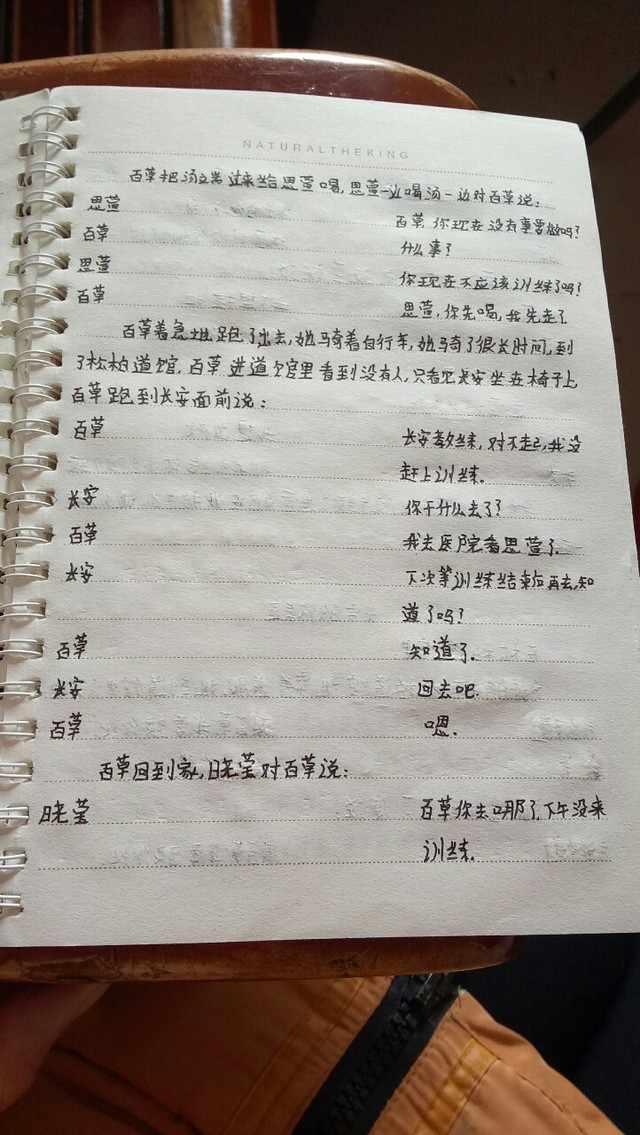 NATURALTHEKING
百草把汤端过来给思萱喝,思萱一边喝汤一边对百草说:
思萱 百草你现在没有事要做吗?
百草 什么事?
思萱 你现在不应该训练了吗?
百草 思萱,你先喝,我先走了
百草着急地跑了出去,她骑着自行车,她骑了很长时间,到
了松柏道馆,百草进道馆里看到没有人,只看见长安坐在椅子上
百草跑到长安面前说:
百草 长安教练,对不起,我没
赶上训练.
长安 你干什么去了?
百草 我去医院看思萱了.
长安 下次等训练结束后再去,知
道了吗?
百草 知道了.
长安 回去吧.
百草 嗯.
百草回到家,晓莹对百草说:
晓莹 百草你去哪了,下午没来
训练.